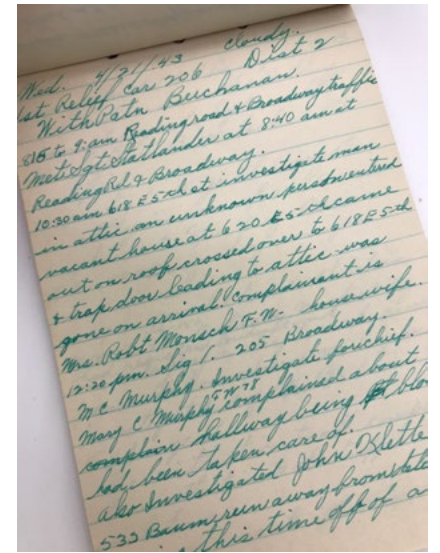 Wed. 4/21/43 cloudy.
1st Relief Car 206 Dist 2
With Patn Buchanan.
815 to 9:am Reading road & Broadway traffic
Met Sgt Statlander at 8:40 am at
Reading Rd & Broadway.
10:30 am 618 E 5th st investigate man
in attic an unknown person entered
vacant house at 620 E 5th came
out on roof crossed over to 618 E 5th
& trap door leading to attic was
gone on arrival. complainant is
Mrs. Robt Monsch F.W. housewife.
12:20 pm. Sig 1. 205 Broadway.
M C Murphy. Investigate for chief.
Mary C Murphy F W 78 complained about
complain hallway being blo
had been taken care of.
also Investigated John Klette
533 Baum run away from
this time off of a